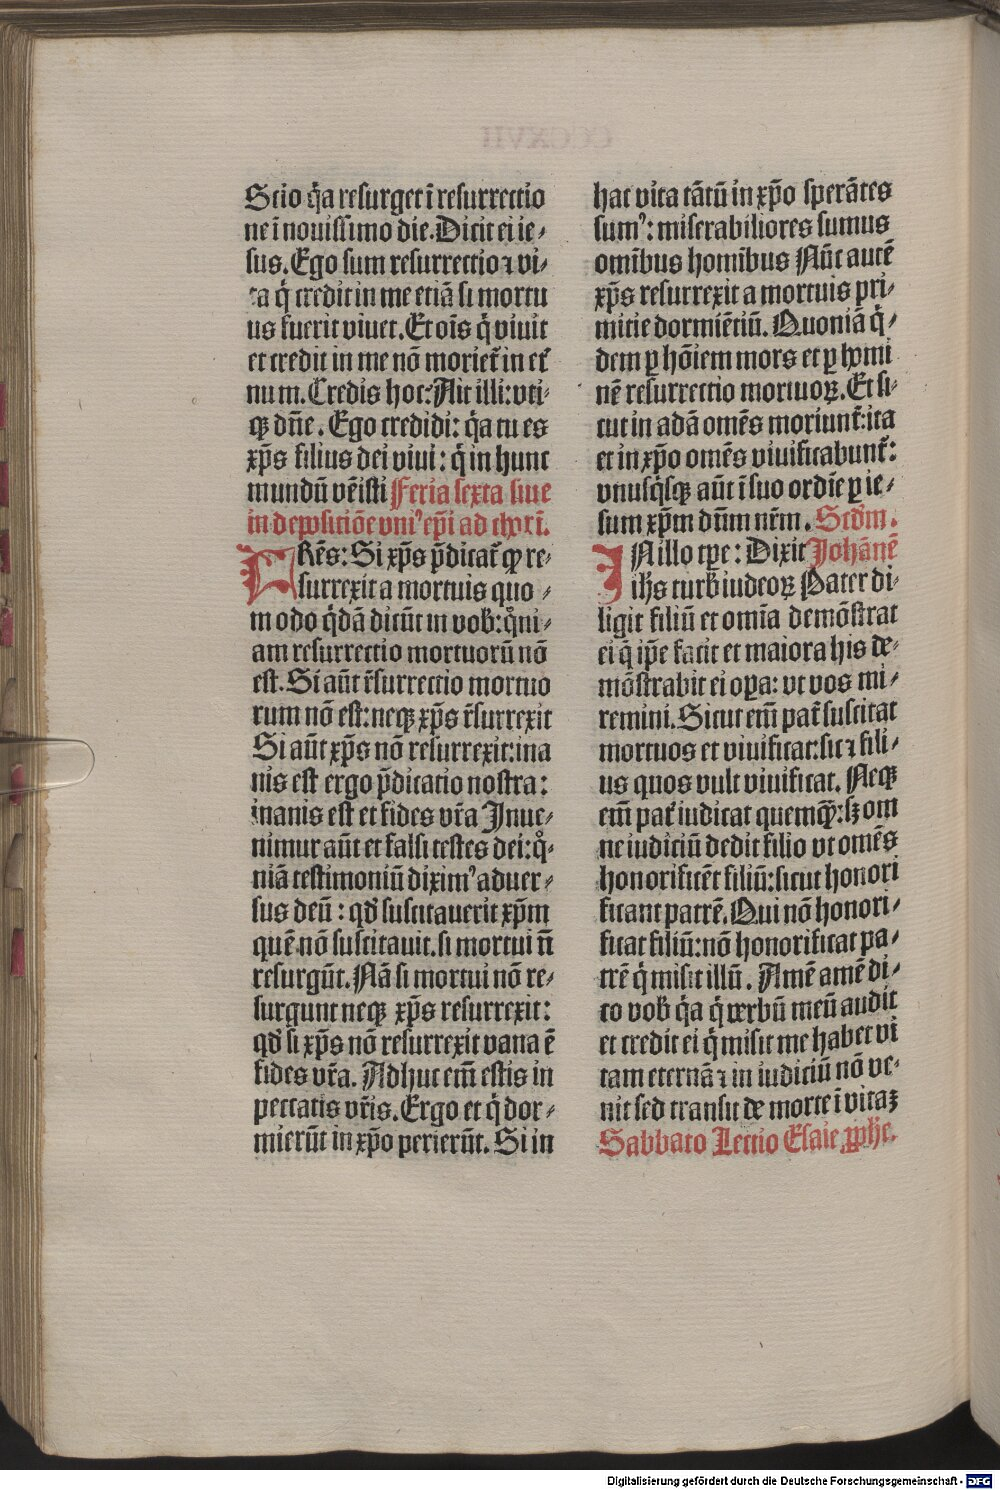 Scio q̃a resurget ĩ resurrectio
ne ĩ nouissimo die. Dicit ei ie⸗
sus. Ego sum resurrectio ⁊ vi⸗
ta q̇ credit in me etiã si mortu
us fuerit viuet. Et oĩs q̇ viuit
et credit in me nõ moriet᷑ in et᷑
num. Credis hoc? Ait illi: vti⸗
qꝫ dñe. Ego credidi: q̃a tu es
xp̃s filius dei viui: q̇ in hunc
mundũ vẽisti Feria sexta siue
in depositiõe vniꝰ ep̃i ad chorĩ.
FRẽs: Si xp̃s p̃dicat᷑ ꝙ re⸗
surrexit a mortuis quo⸗
modo q̇dã dicũt in vob̃: q̊ni⸗
am resurrectio mortuorũ nõ
est. Si aũt r̃surrectio mortuo
rum nõ est: neqꝫ xp̃s r̃surrexit
Si aũt xp̃s nõ resurrexit: ina
nis est ergo p̃dicatio nostra:
inanis est et fides vr̃a Inue⸗
nimur aũt et falsi testes dei: q̊⸗
niã testimoniũ diximꝰ aduer⸗
sus deũ: qđ suscitauerit xp̃m
quẽ nõ suscitauit. si mortui ñ
resurgũt. Nã si mortui nõ re⸗
surgunt neqꝫ xp̃s resurrexit:
qđ si xp̃s nõ resurrexit vana ẽ
fides vr̃a. Adhuc em̃ estis in
peccatis vr̃is. Ergo et q̇ dor⸗
mierũt in xp̃o perierũt. Si in
hac vita tãtũ in xp̃o sperãtes
sumꝰ: miserabiliores sumus
omĩbus homĩbus Nũc autẽ
xp̃s resurrexit a mortuis pri⸗
mitie dormiẽtiũ. Quoniã q̇⸗
dem ꝑ hõiem mors et ꝑ homi
nẽ resurrectio mortuoꝝ. Et si⸗
cut in adã omẽs moriunt᷑: ita
et in xp̃o omẽs viuificabunt᷑:
vnusq̇sqꝫ aũt ĩ suo ordĩe ꝑ ie⸗
sum xp̃m dñm nr̃m. Scđm.
INillo tꝑe: Dixit Johãnẽ
ih̃s turb̃ iudeoꝝ Pater di⸗
ligit filiũ et omĩa demõstrat
ei q̃ ip̃e facit et maiora his de⸗
mõstrabit ei oꝑa: vt vos mi⸗
remini. Sicut em̃ pat᷑ suscitat
mortuos et viuificat: sic ⁊ fili⸗
us quos vult viuificat. Neqꝫ
em̃ pat᷑ iudicat quemqꝫ̃: sꝫ om
ne iudiciũ dedit filio vt omẽs
honorificẽt filiũ: sicut honori
ficant patrẽ. Qui nõ honori⸗
ficat filiũ: nõ honorificat pa⸗
trẽ q̇ misit illũ. Amẽ amẽ di⸗
co vob̃ q̃a q̇ verbũ meũ audit
et credit ei q̇ misit me habet vi
tam eternã ⁊ in iudiciũ nõ ve⸗
nit sed transit de morte ĩ vitaꝫ
Sabbato Lectio Esaie ꝓphe.
Digitalisierung gefördert durch die Deutsche Forschungsgemeinschaft - DFG